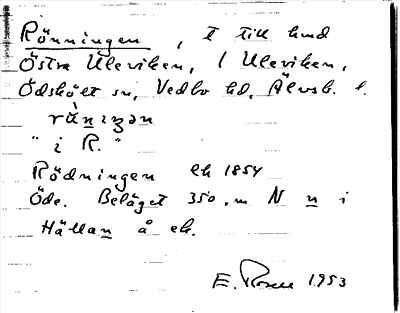 Rönningen, t till hmd
Östra Uleviken, / Uleviken,
Ödskölt sn, Vedbo hd, Älvsb. l.
rǜnɩŋən
"i R."
Rödningen ek 1854
Öde. Beläget 350 m N n i
Hällan å ek.
E. Rosell 1953